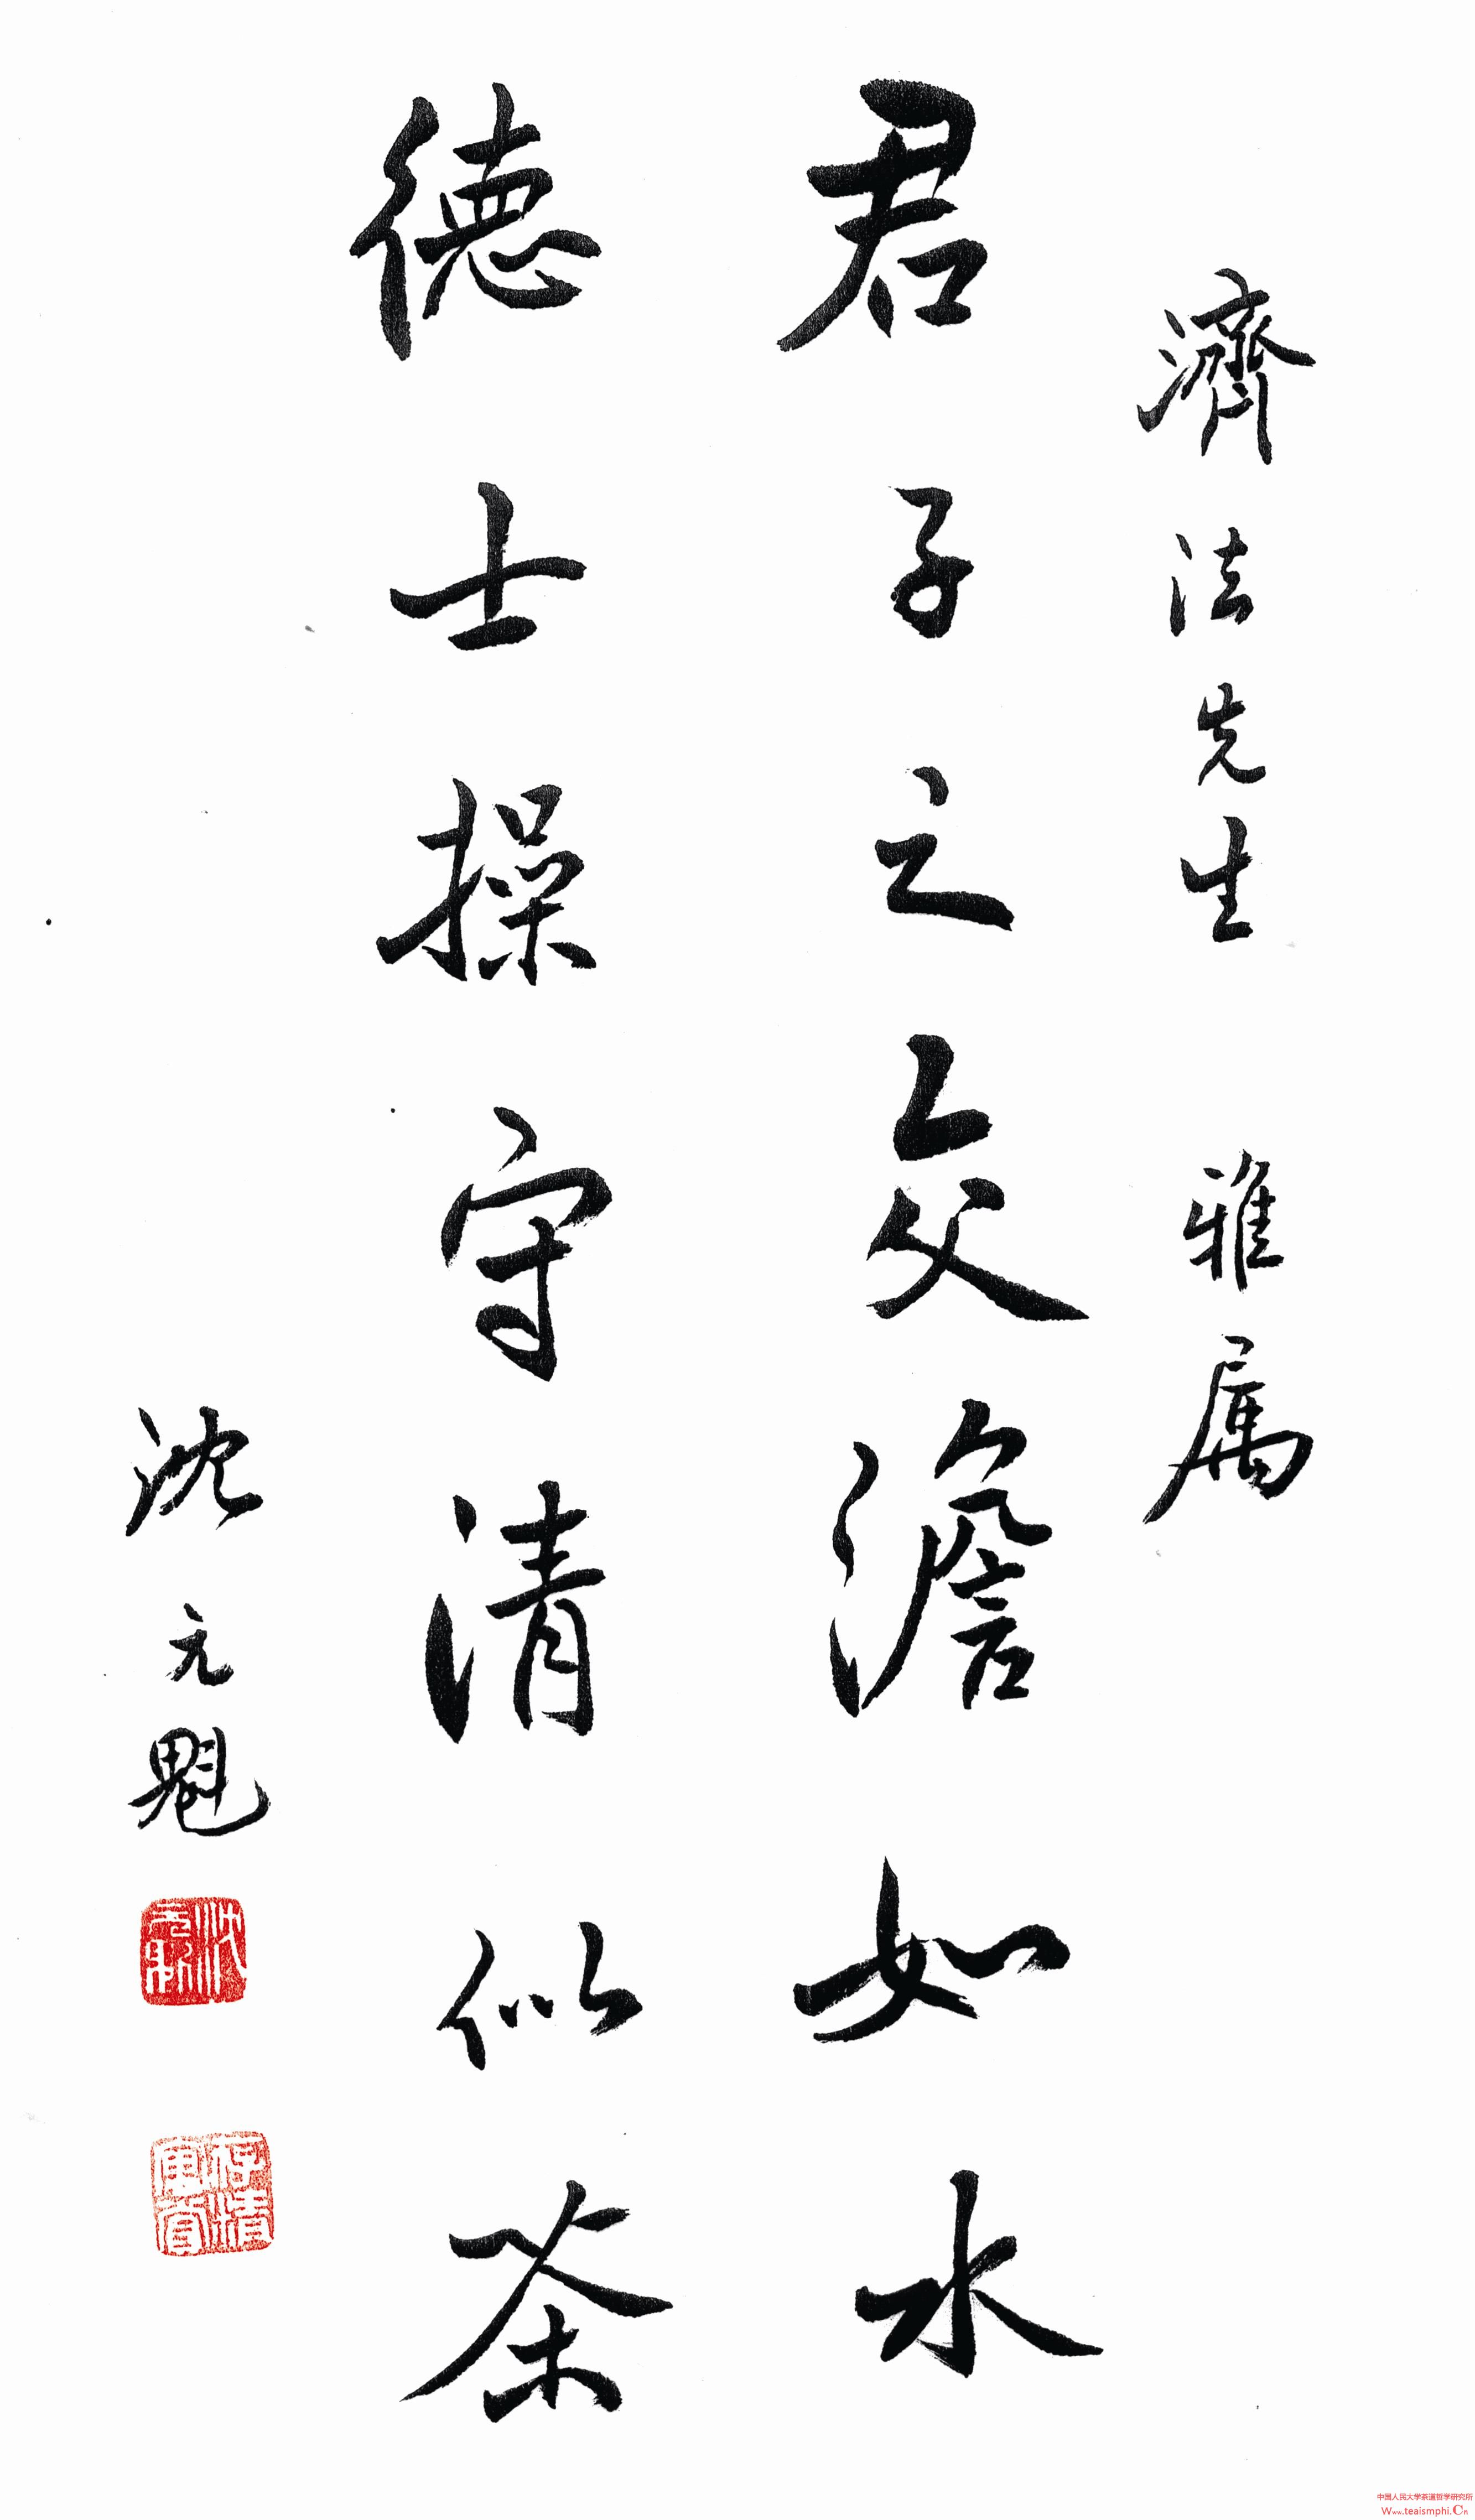 濟法先生 雅属
君子之交澹如水
德士操守清似茶
沈元魁
中国人民大学茶道哲学研究所
Www.teaismphi.Cn